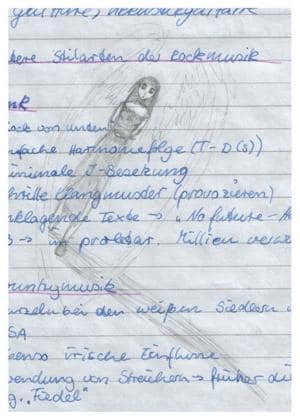 dere Stilarten der Rockmusik
von unten
nfache Harmoniefolge (T-D(s))
nimale J-Besetzung
hrille Klangmuster (provozieren)
nklagende Texte → "No future-
→ im proletar. Millieu
untrymusik
urzeln bei den weißen Siedlern
SA
benso irische Einflüsse
wendung von Streichern → früher di
g. "Fiedel"